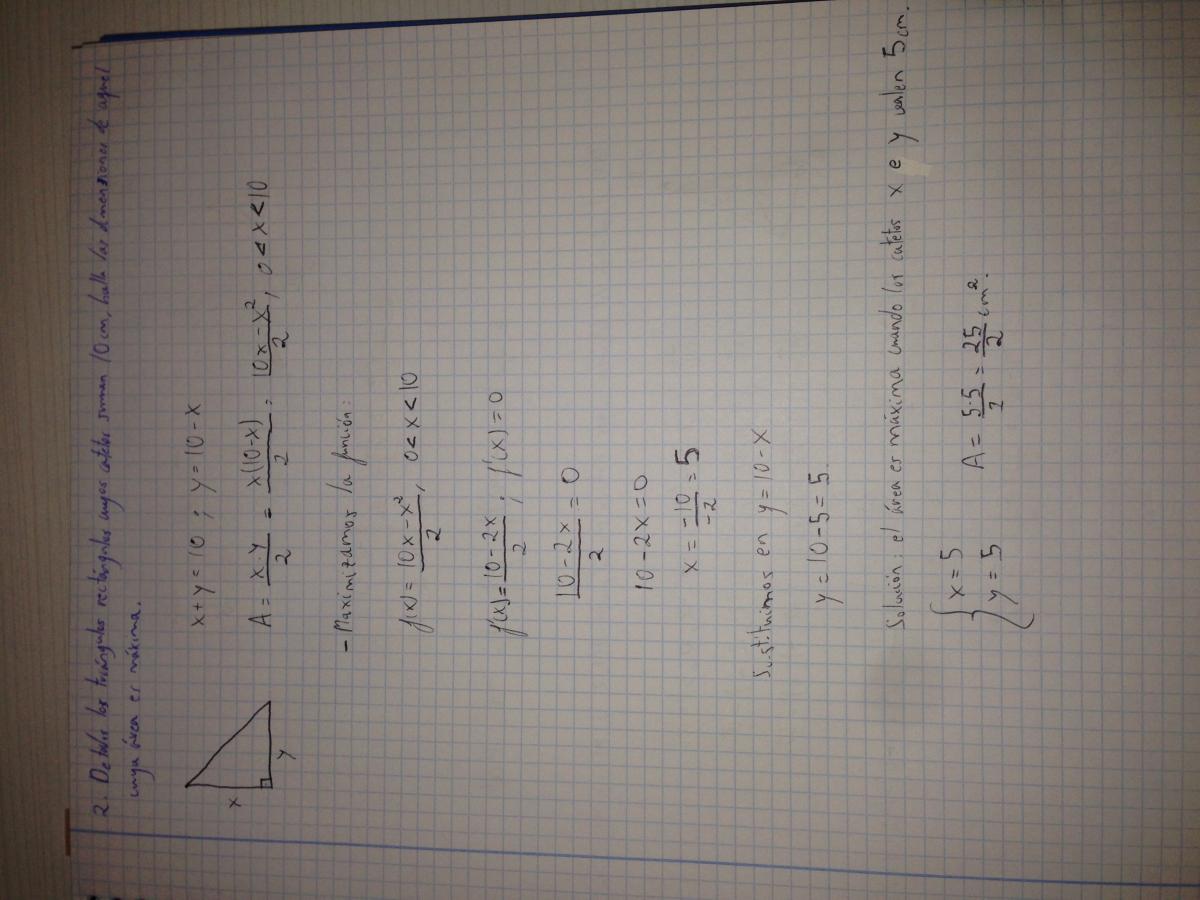 2. De todos los triángulos rectángulos cuyos catetos suman 10 cm, halla las dimensiones de aquel
cuya área es máxima.
x
y
x+y=10 ; y=10-x
A = x·y/2 = x(10-x)/2 = 10x-x²/2, 0<x<10
- Maximizamos la función:
f(x) = 10x-x²/2, 0<x<10
f'(x) = 10-2x/2 ; f'(x)=0
10-2x/2 = 0
10-2x=0
x = -10/-2 = 5
Sustituimos en y=10-x
y=10-5=5.
Solución: el área es máxima cuando los catetos x e y valen 5 cm.
{ x=5
y=5
A = 5·5/2 = 25/2 cm².